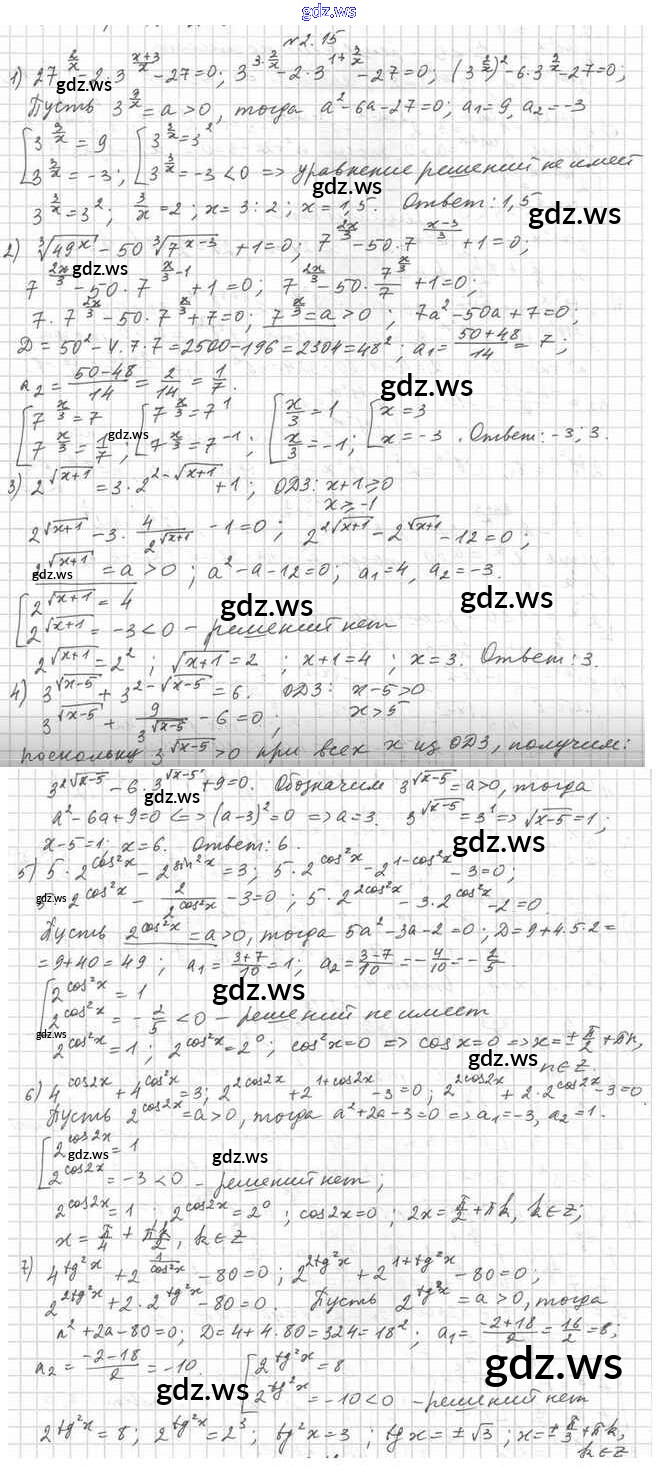 gdz.ws
№2.15
1) 27^{2/x} - 2·3^{(x+3)/x} - 27 = 0; 3^{3·2/x} - 2·3^{1+3/x} - 27 = 0; (3^{3/x})² - 6·3^{3/x} - 27 = 0;
Пусть 3^{3/x} = a > 0, тогда a² - 6a - 27 = 0; a₁ = 9, a₂ = -3
[3^{3/x} = 9 [3^{3/x} = 3²
[3^{3/x} = -3; [3^{3/x} = -3 < 0 => уравнение решений не имеет
3^{3/x} = 3²; 3/x = 2; x = 3:2; x = 1,5. Ответ: 1,5
2) ∛(49^x) - 50 ∛(7^{x-3}) + 1 = 0; 7^{2x/3} - 50·7^{(x-3)/3} + 1 = 0;
7^{2x/3} - 50·7^{x/3-1} + 1 = 0; 7^{2x/3} - 50·7^{x/3}/7 + 1 = 0;
7·7^{2x/3} - 50·7^{x/3} + 7 = 0; 7^{x/3} = a > 0; 7a² - 50a + 7 = 0;
D = 50² - 4·7·7 = 2500 - 196 = 2304 = 48²; a₁ = (50+48)/14 = 7;
a₂ = (50-48)/14 = 2/14 = 1/7.
[7^{x/3} = 7 [7^{x/3} = 7¹ [x/3 = 1 [x = 3
[7^{x/3} = 1/7; [7^{x/3} = 7^{-1}; [x/3 = -1; [x = -3. Ответ: -3; 3.
3) 2^{√(x+1)} = 3·2^{2-√(x+1)} + 1; ОДЗ: x+1 ≥ 0
x ≥ -1
2^{√(x+1)} - 3·4/2^{√(x+1)} - 1 = 0; 2^{2√(x+1)} - 2^{√(x+1)} - 12 = 0;
2^{√(x+1)} = a > 0; a² - a - 12 = 0; a₁ = 4, a₂ = -3.
[2^{√(x+1)} = 4
[2^{√(x+1)} = -3 < 0 - решений нет
2^{√(x+1)} = 2²; √(x+1) = 2; x+1 = 4; x = 3. Ответ: 3.
4) 3^{√(x-5)} + 3^{2-√(x-5)} = 6. ОДЗ: x-5 > 0
x > 5
3^{√(x-5)} + 9/3^{√(x-5)} - 6 = 0;
поскольку 3^{√(x-5)} > 0 при всех x из ОДЗ, получим:
3^{2√(x-5)} - 6·3^{√(x-5)} + 9 = 0. Обозначим 3^{√(x-5)} = a > 0, тогда
a² - 6a + 9 = 0 <=> (a-3)² = 0 => a = 3. 3^{√(x-5)} = 3¹ => √(x-5) = 1;
x-5 = 1; x = 6. Ответ: 6.
5) 5·2^{cos²x} - 2^{sin²x} = 3; 5·2^{cos²x} - 2^{1-cos²x} - 3 = 0;
5·2^{cos²x} - 2/2^{cos²x} - 3 = 0; 5·2^{2cos²x} - 3·2^{cos²x} - 2 = 0.
Пусть 2^{cos²x} = a > 0, тогда 5a² - 3a - 2 = 0; D = 9 + 4·5·2 =
= 9 + 40 = 49; a₁ = (3+7)/10 = 1; a₂ = (3-7)/10 = -4/10 = -2/5
[2^{cos²x} = 1
[2^{cos²x} = -2/5 < 0 - решений не имеет
2^{cos²x} = 1; 2^{cos²x} = 2⁰; cos²x = 0 => cos x = 0 => x = ±π/2 + πn,
n ∈ Z.
6) 4^{cos2x} + 4^{cos²x} = 3; 2^{2cos2x} + 2^{1+cos2x} - 3 = 0; 2^{2cos2x} + 2·2^{cos2x} - 3 = 0.
Пусть 2^{cos2x} = a > 0, тогда a² + 2a - 3 = 0 => a₁ = -3, a₂ = 1.
[2^{cos2x} = 1
[2^{cos2x} = -3 < 0 - решений нет;
2^{cos2x} = 1; 2^{cos2x} = 2⁰; cos2x = 0; 2x = π/2 + πk, k ∈ Z;
x = π/4 + πk/2, k ∈ Z
7) 4^{tg²x} + 2^{1/cos²x} - 80 = 0; 2^{2tg²x} + 2^{1+tg²x} - 80 = 0;
2^{2tg²x} + 2·2^{tg²x} - 80 = 0. Пусть 2^{tg²x} = a > 0, тогда
a² + 2a - 80 = 0; D = 4 + 4·80 = 324 = 18²; a₁ = (-2+18)/2 = 16/2 = 8;
a₂ = (-2-18)/2 = -10. [2^{tg²x} = 8
[2^{tg²x} = -10 < 0 - решений нет
2^{tg²x} = 8; 2^{tg²x} = 2³; tg²x = 3; tg x = ±√3; x = ±π/3 + πk,
k ∈ Z